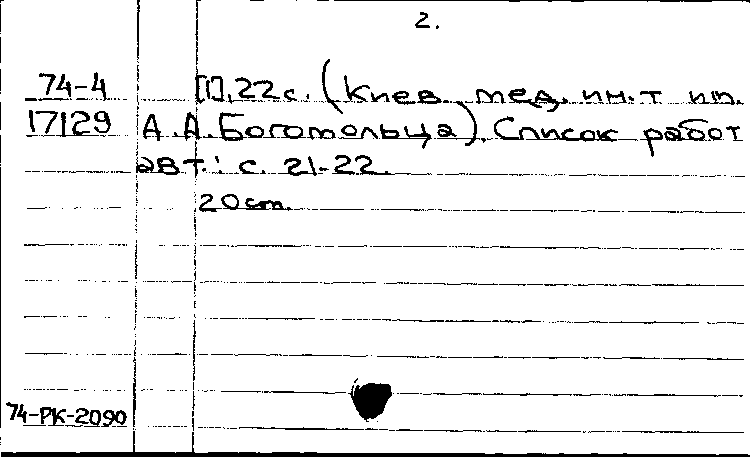 2.
74-4 [1], 22 с. (Киев. мед. ин.т им.
17129 А.А.Богомольца). Список работ
авт.: с. 21-22.
20 cm.
74-РК-2090